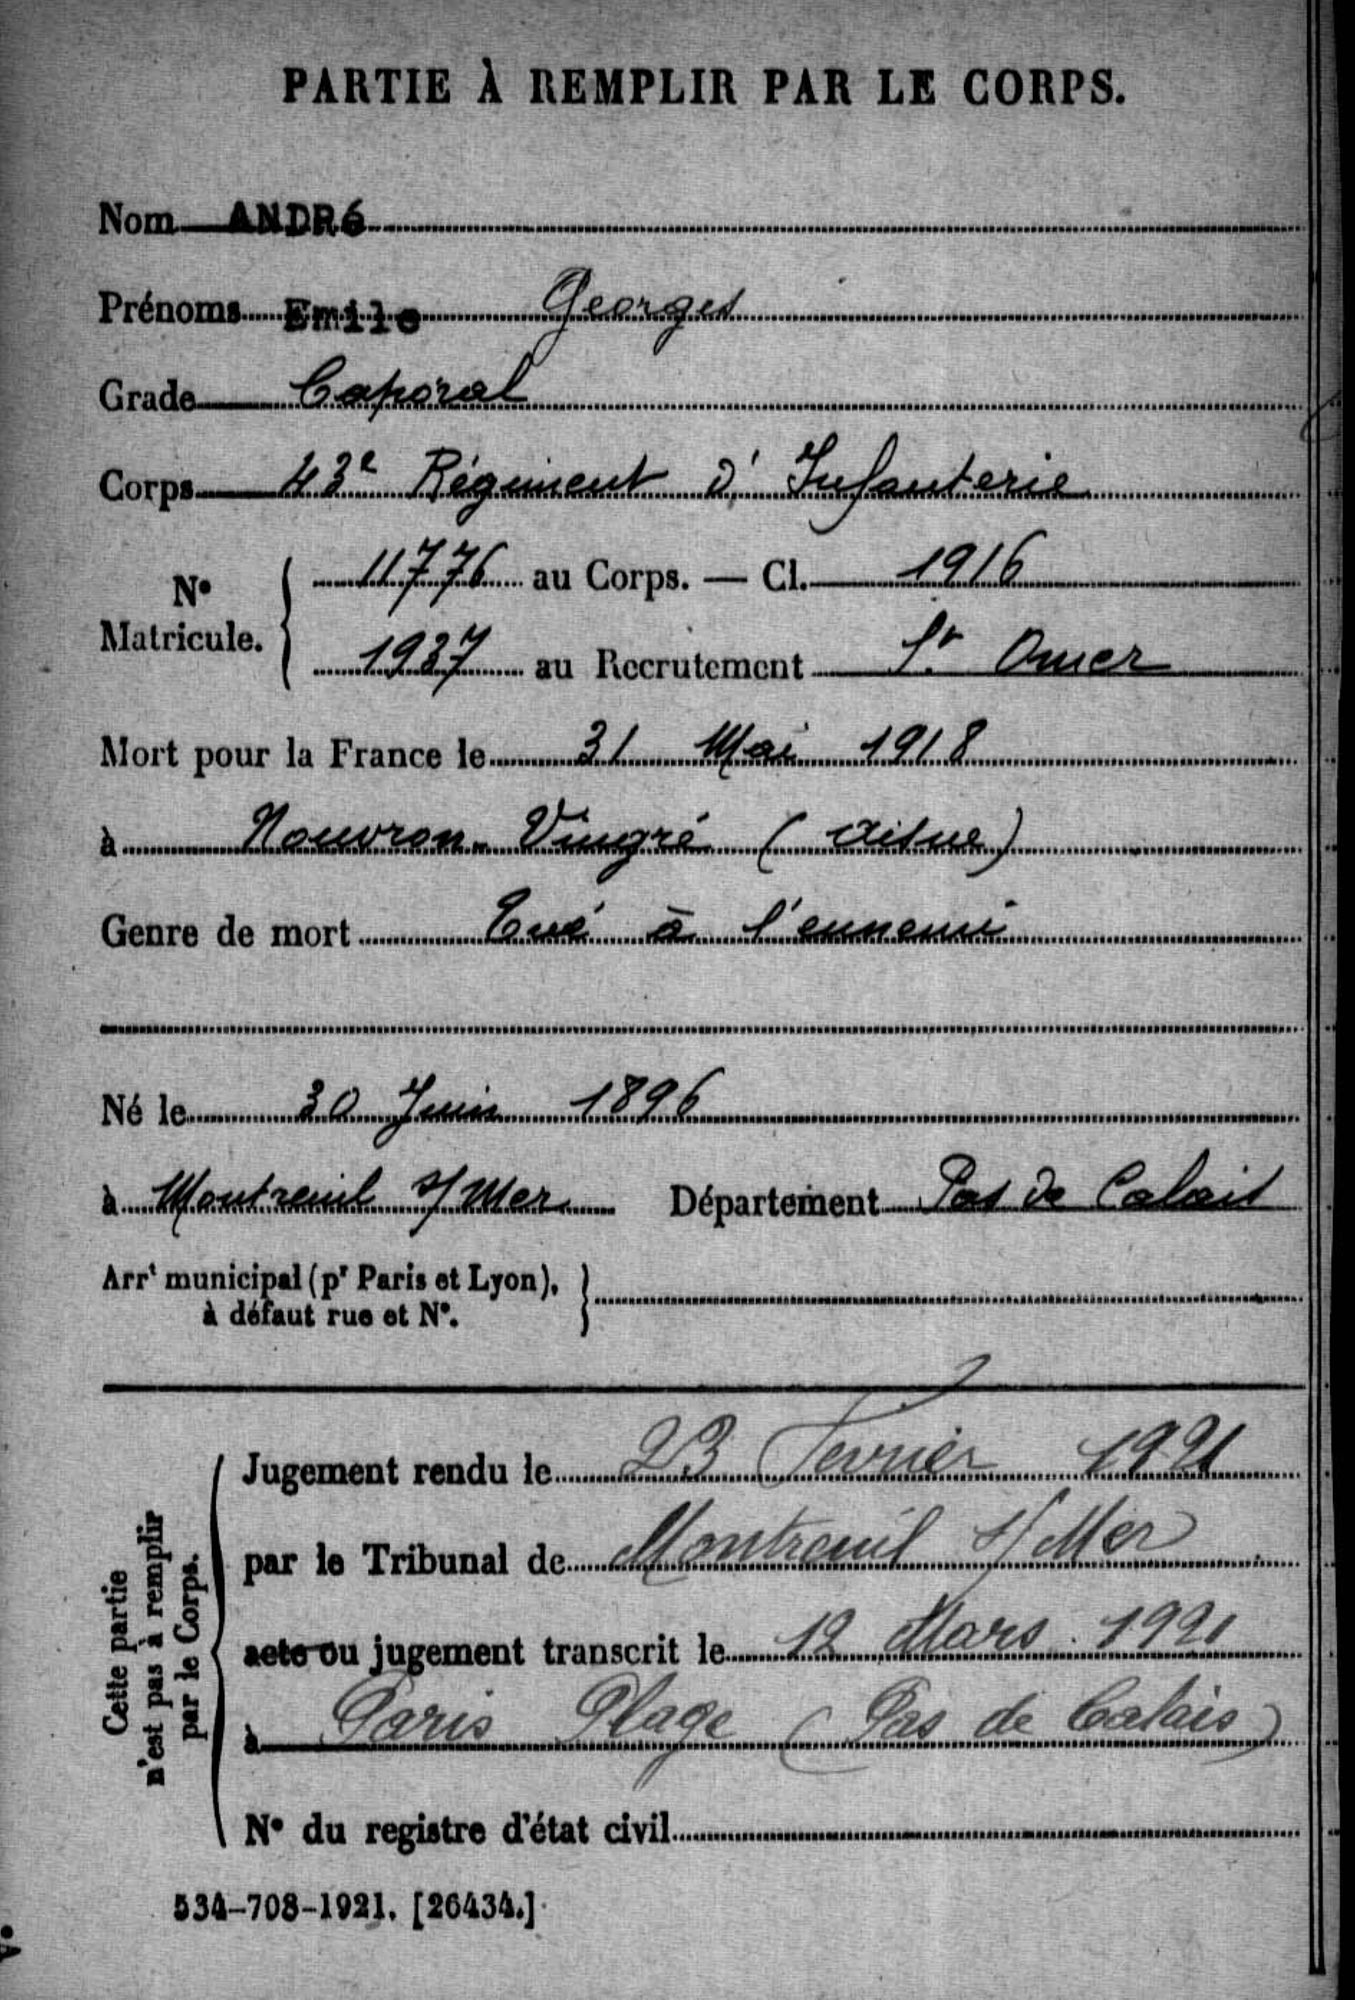 PARTIE À REMPLIR PAR LE CORPS.
Nom ANDRé
Prénoms Emile Georges
Grade Caporal
Corps 43e Régiment d'Infanterie
N° Matricule. { 11776 au Corps. — Cl. 1916
1937 au Recrutement St Omer
Mort pour la France le 31 Mai 1918
à Nouvron-Vingré (Aisne)
Genre de mort Tué à l'ennemi
Né le 30 Juin 1896
à Montreuil s/Mer Département Pas de Calais
Arrt municipal (pr Paris et Lyon),
à défaut rue et N°.
Cette partie
n'est pas à remplir
par le Corps.
Jugement rendu le 23 Fevrier 1921
par le Tribunal de Montreuil s/Mer
acte ou jugement transcrit le 12 Mars 1921
à Paris Plage (Pas de Calais)
N° du registre d'état civil
534-708-1921. [26434.]